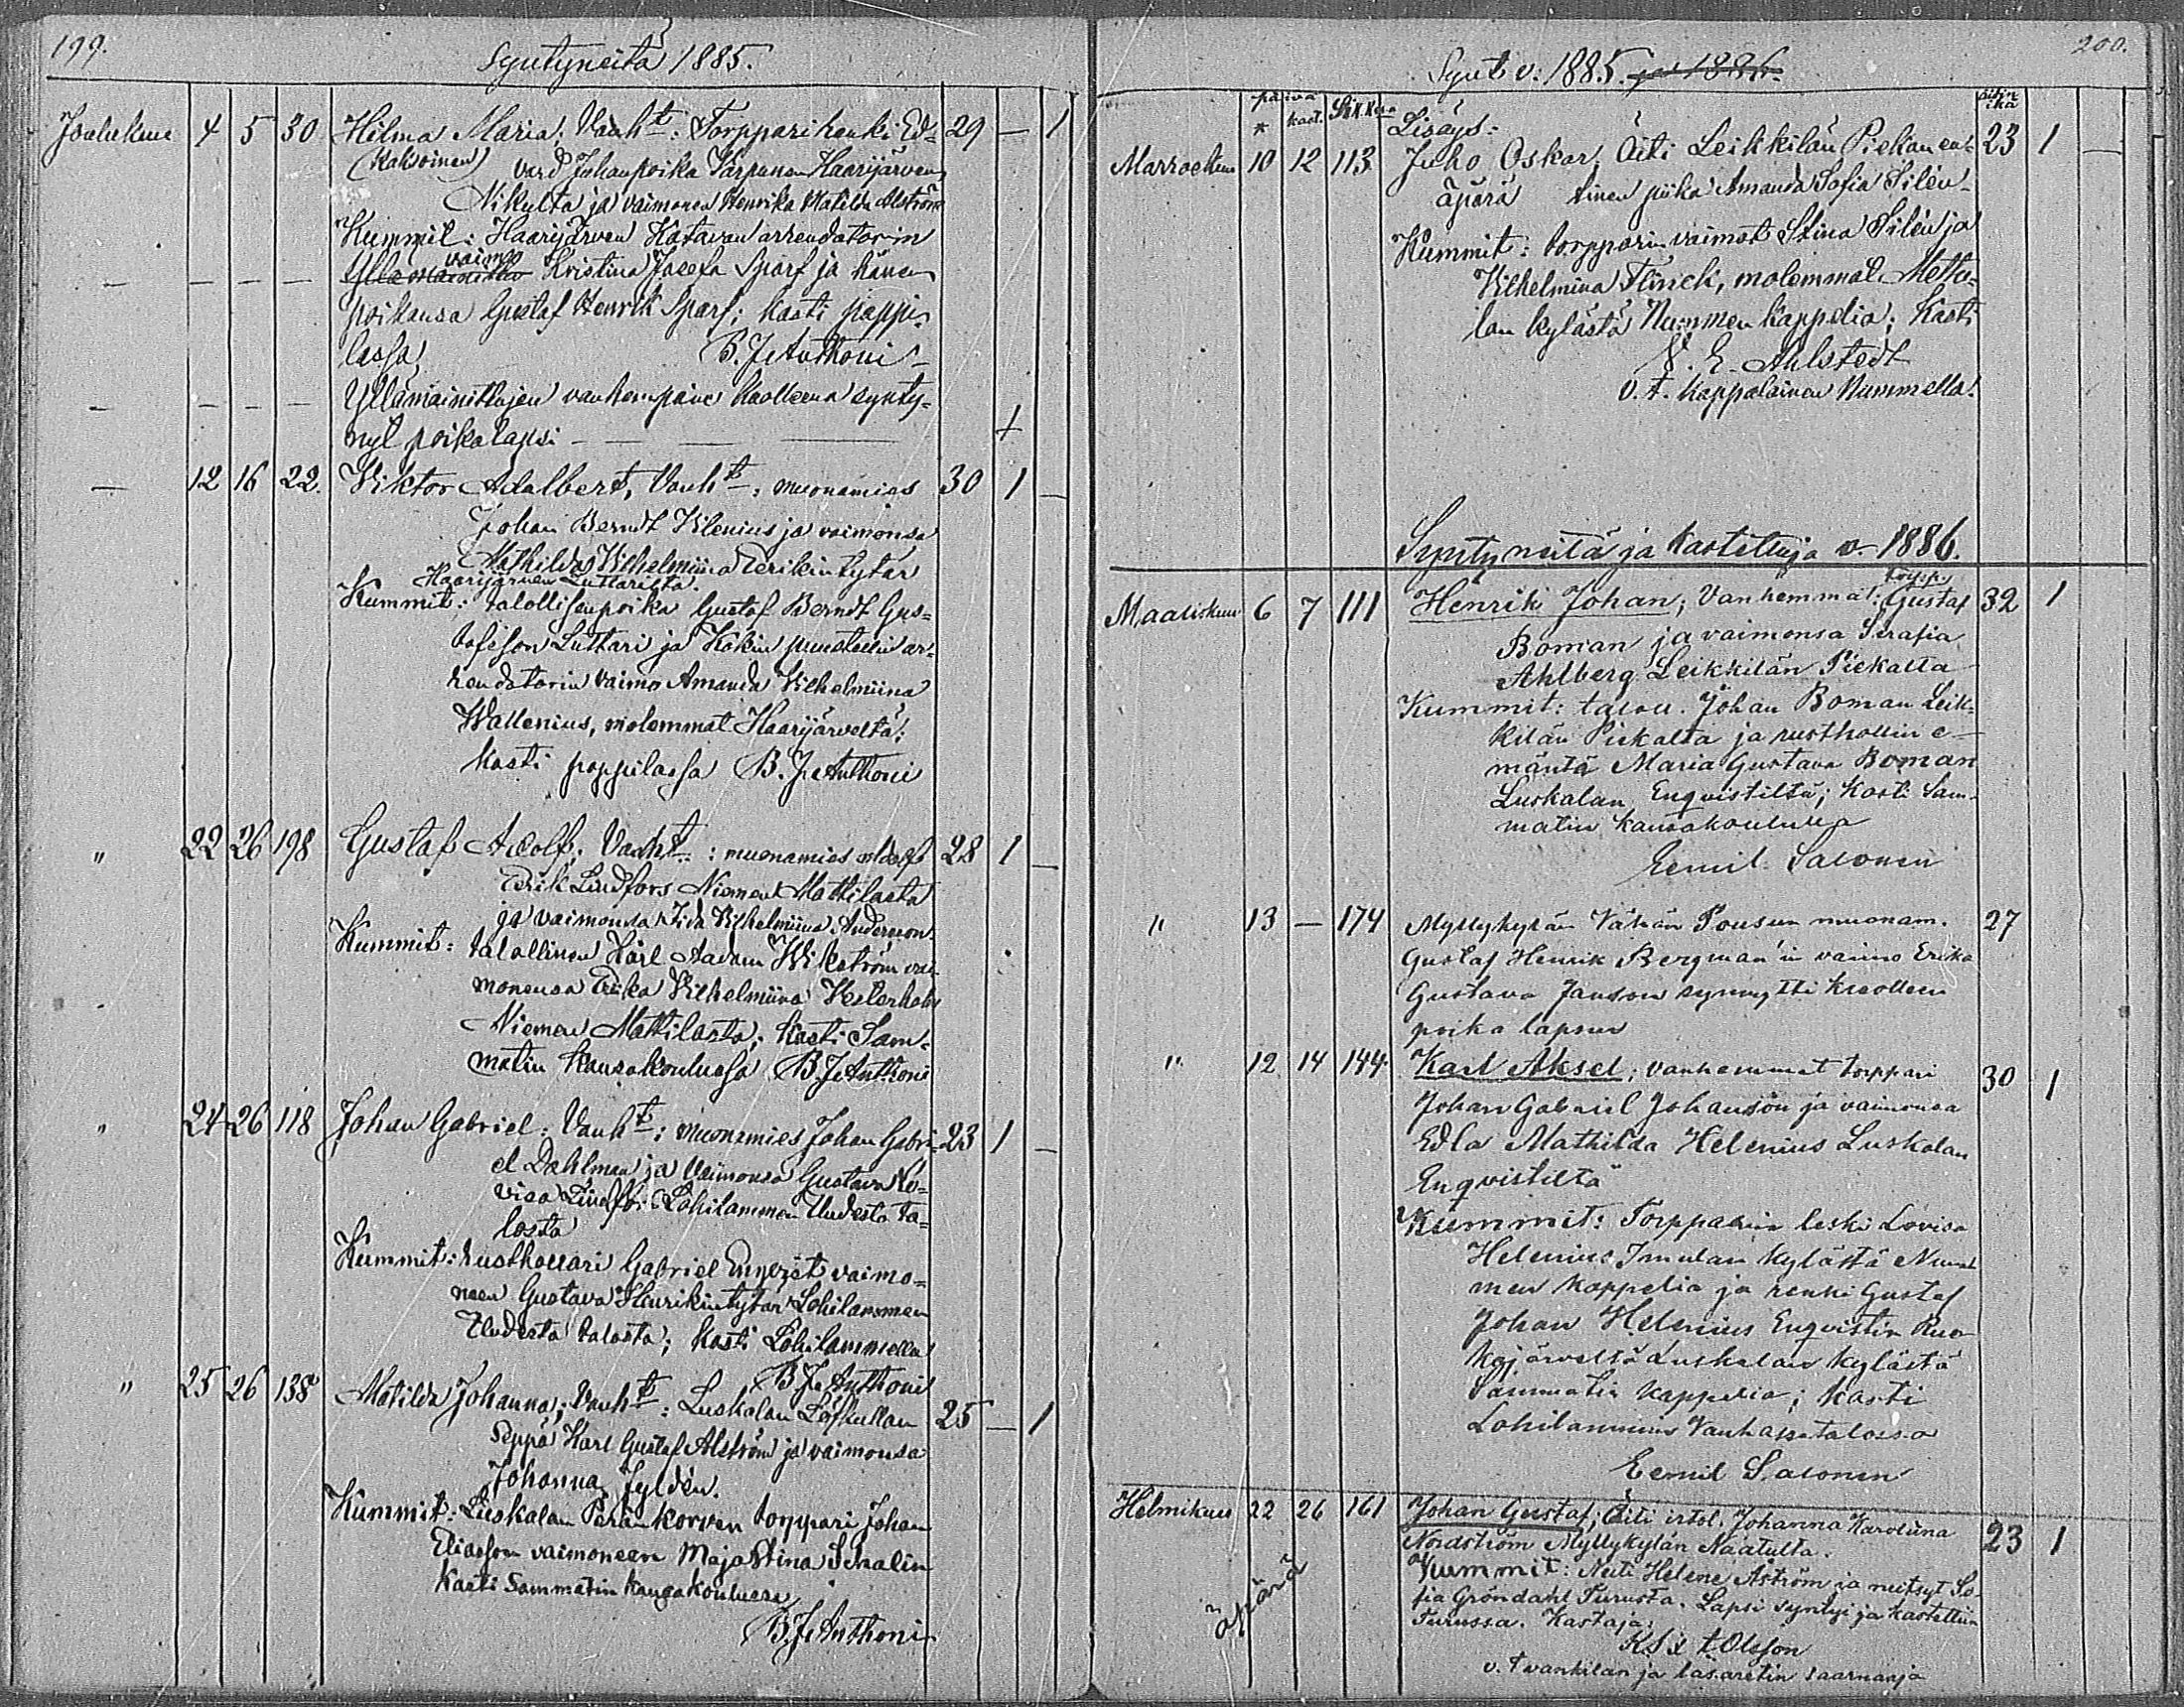 199.
Syntyneitä 1885.
Joulukuu 4 5 30 Hilma Maria; Vanht: Torpparihenki Ed- 29 — 1
(Kaksoinen) vard Johanpoika Karpanen Haarijärven
Nikulta ja vaimonsa Henrika Matilda Alström
Kummit: Haarijärven Katavan arrendatorin
vaimo
— — — — Kristina Josefa Sparf ja hänen
poikansa Gustaf Henrik Sparf; kasti pappi-
lassa, B. J. Anthoni
— — — — Yllämainittujen vanhempain kuolleena synty-
nyt poikalapsi — — — — +
— 12 16 22. Viktor Adalbert, Vanht: muonamies 30 1 —
Johan Berndt Vilenius ja vaimonsa
Mathilda Vilhelmiina Eerikintytär
Haarijärven Luttarista.
Kummit: talollisenpoika Gustaf Berndt Gus-
tafsson Luttari ja Kokin puustellin ar-
rendatorin vaimo Amanda Vilhelmiina
Wallenius, molemmat Haarijärveltä;
kasti pappilassa B. J. Anthoni
" 22 26 198 Gustaf Adolf; Vanht: muonamies Adolf 28 1 —
Erik Lindfors Niemen Mattilasta
ja vaimonsa Iida Vilhelmiina Andersson.
Kummit: talollinen Karl Aadam Wikström vai-
monensa Erika Vilhelmiina
Niemen Mattilasta; Kasti Sam-
matin Kansakoulussa B. J. Anthoni
" 24 26 118 Johan Gabriel: Vanht: muonamies Johan Gabri- 23 1 —
el Dahlman ja vaimonsa Gustava Lo-
visa Lindfors Lohilammen Uudesta ta-
losta
Kummit: Rusthollari Gabriel Enqvist vaimo-
neen Gustava Henrikintytär Lohilammen
Uudesta talosta; kasti Lohilammella
B. J. Anthoni
" 25 26 138 Matilda Johanna; Vanht: Luskalan Löfkullan 25 — 1
Seppä Karl Gustaf Alström ja vaimonsa
Johanna Jyldén.
Kummit: Luskalan Peränkorven torppari Johan
Eliasson vaimoneen Maja Stina Schalin
Kasti Sammatin Kansakoulussa
B. J. Anthoni
200.
Synt v: 1885. ja 1886.
päivä
* kast. Sik. Kirja äitin ikä
Lisäys:
Marraskuu 10 12 113 Juho Oskar, Äiti Leikkilän Piekan en- 23 1 —
äpärä tinen piika Amanda Sofia Silén
Kummit: torpparin vaimot Stina Silén ja
Vilhelmina Flinck, molemmat Metto-
lan kylästä Nummen kappelia; Kasti
E. Ahlstedt
v. t. kappalainen Nummella.
Syntyneitä ja kastettuja v. 1886.
torpp.
Maaliskuu 6 7 111 Henrik Johan; Vanhemmat: Gustaf 32 1
Boman ja vaimonsa Serafia
Ahlberg Leikkilän Piekalta
Kummit: talou. Johan Boman Leik-
kilän Piekalta ja rusthollin e-
mäntä Maria Gustava Boman
Luskalan Enqvistiltä; Kasti Sam-
matin kansakoululla
Eemil Salonen
" 13 — 174 Myllykylän Vähän Pousun muonam. 27
Gustaf Henrik Bergman'in vaimo Erika
Gustava Jansson synnytti kuolleen
poika lapsen
" 12 14 144. Karl Aksel; vanhemmat torppari 30 1
Johan Gabriel Johansson ja vaimonsa
Edla Mathilda Helenius Luskalan
Enqvistiltä
Kummit: Torpparin leski Lovisa
Helenius Immulan kylästä Num-
men kappelia ja renki Gustaf
Johan Helenius Enqvistin Ruo-
kojärveltä Luskalan kylästä
Sammatin kappelia; Kasti
Lohilammin Vanhassatalossa
Eemil Salonen
Helmikuu 22 26 161 Johan Gustaf; Äiti irtol. Johanna Karoliina 23 1
Nordström Myllykylän Naatulta.
äpärä
Kummit: Neiti Helene Åström ja neitsyt So-
fia Gröndahl Turusta. Lapsi syntyi ja kastettiin
Turussa. Kastaja:
Olsson
v. t. vankilan ja lasaretin saarnaaja